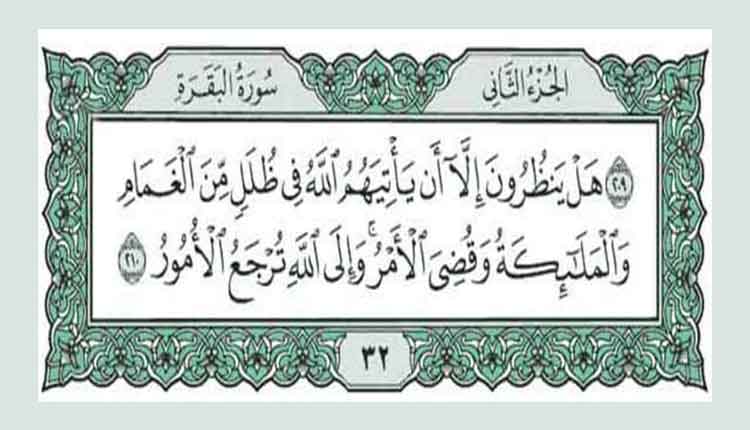 الجُزْءُ الثَّانِى
سُورَةُ البَقَرَةِ
٢٠٩ هَلْ يَنظُرُونَ إِلَّآ أَن يَأْتِيَهُمُ ٱللَّهُ فِى ظُلَلٍ مِّنَ ٱلْغَمَامِ
وَٱلْمَلَٰٓئِكَةُ وَقُضِىَ ٱلْأَمْرُ ۚ وَإِلَى ٱللَّهِ تُرْجَعُ ٱلْأُمُورُ ٢١٠
٣٢